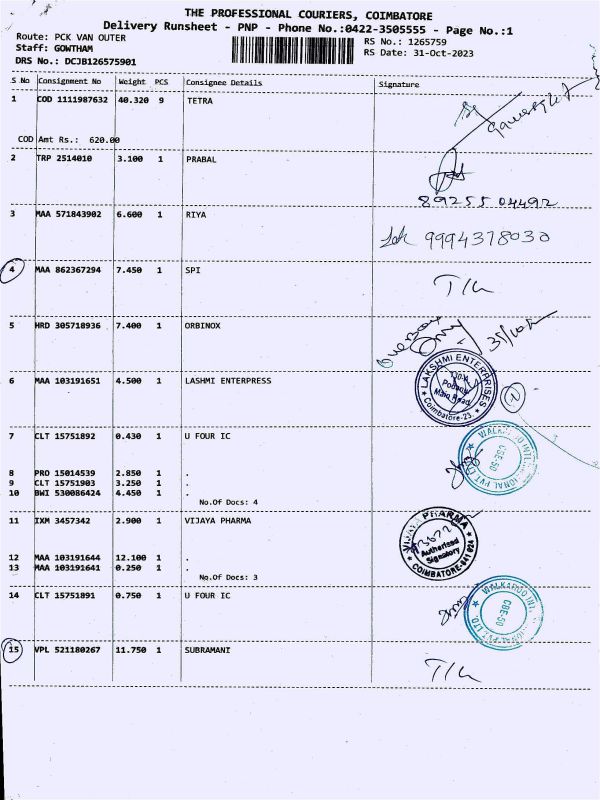 THE PROFESSIONAL COURIERS, COIMBATORE
Delivery Runsheet - PNP - Phone No.:0422-3505555 - Page No.:1
Route: PCK VAN OUTER
RS No.: 1265759
Staff: GOWTHAM
RS Date: 31-Oct-2023
DRS No.: DCJB126575901
S No Consignment No Weight PCS Consignee Details Signature
1 COD 1111987632 40.320 9 TETRA
COD Amt Rs.: 620.00
2 TRP 2514010 3.100 1 PRABAL
8925504492
3 MAA 571843902 6.600 1 RIYA
9994378030
4 MAA 862367294 7.450 1 SPI
T/L
5 HRD 305718936 7.400 1 ORBINOX
6 MAA 103191651 4.500 1 LASHMI ENTERPRESS
LAKSHMI ENTERPRISES
Main Road
Coimbatore-23.
7 CLT 15751892 0.430 1 U FOUR IC
CBE-50
8 PRO 15014539 2.850 1 .
9 CLT 15751903 3.250 1 .
10 BWI 530086424 4.450 1 .
No.Of Docs: 4
11 IXM 3457342 2.900 1 VIJAYA PHARMA
VIJAYA PHARMA
Authorised
Signatory
COIMBATORE-641 024
12 MAA 103191644 12.100 1 .
13 MAA 103191641 0.250 1 .
No.Of Docs: 3
14 CLT 15751891 0.750 1 U FOUR IC
CBE-50
15 VPL 521180267 11.750 1 SUBRAMANI
T/L